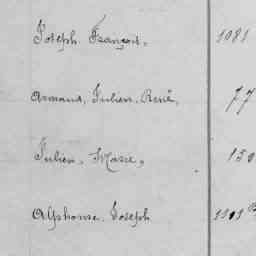 Joseph. François. 1081
Armand, Julien, René, 77
Julien, Marie, 150
Alphonse. Joseph